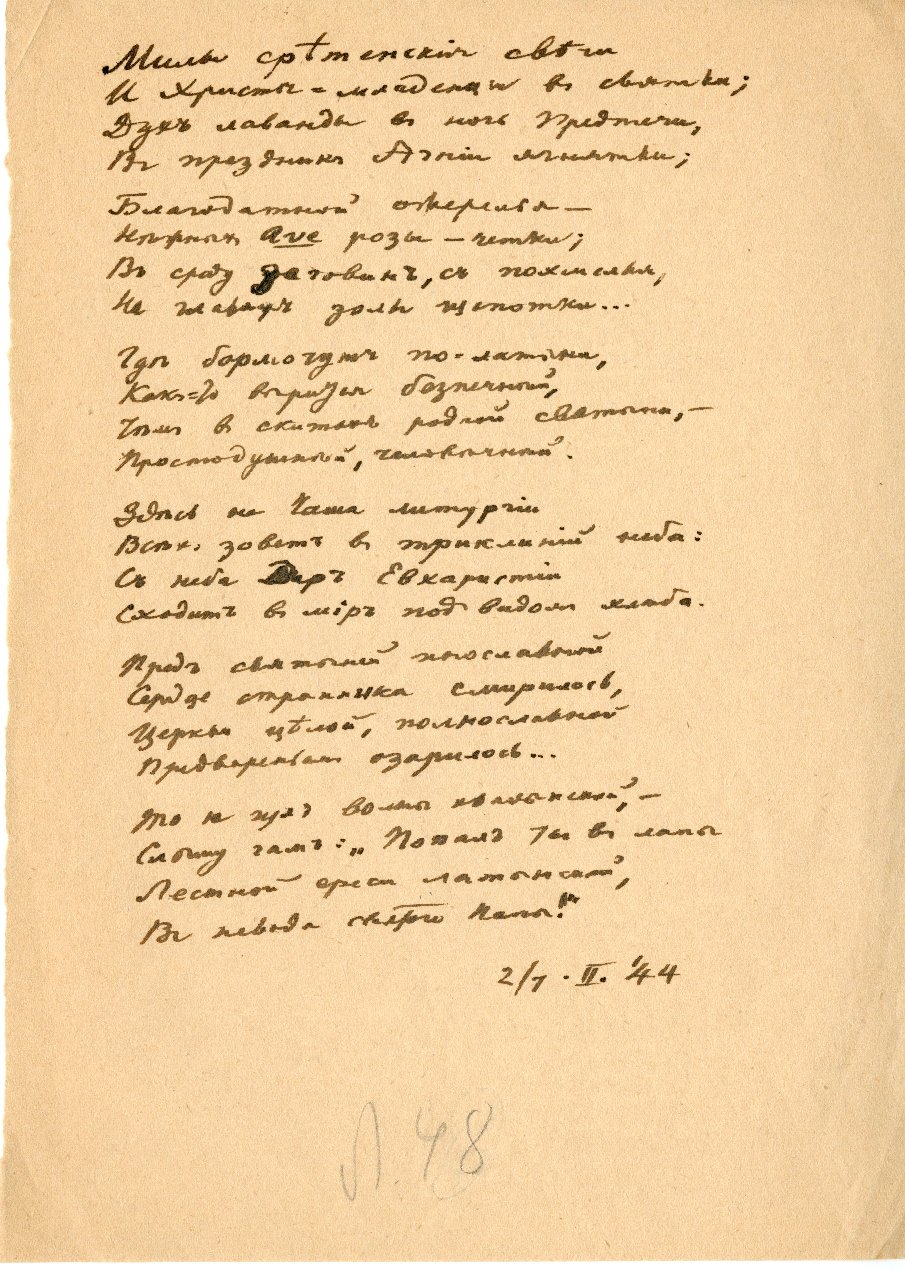 Милы срѣтенскія свѣчи
И Христы-младенцы въ святки;
Духъ лаванды въ ночь Предтечи,
Въ праздникъ Агніи ягнятки;
Благодатной ожерелья —
Нѣжныхъ Ave розы-четки;
Въ среду заговинъ, съ похмелья,
На главахъ золы щепотки...
Гдѣ бормочутъ по-латыни,
Какъ-то вѣрится безпечнѣй,
Чѣмъ в скитахъ родной святыни, —
Простодушнѣй, человѣчнѣй.
Здѣсь не Чаша литургіи
Всѣхъ зоветъ въ триклиній неба:
Съ неба Даръ Евхаристіи
Сходитъ въ міръ под видомъ хлѣба.
Предъ святыней инославной
Сердце странника смирилось,
Церкви цѣлой, полнославной
Предвареньемъ озарилось...
То не гулъ волны
Слышу гамъ: „Попалъ ты въ лапы
Лестной ереси латынской,
Въ невода святого Папы!"
2/7 · II. '44
Л. 48